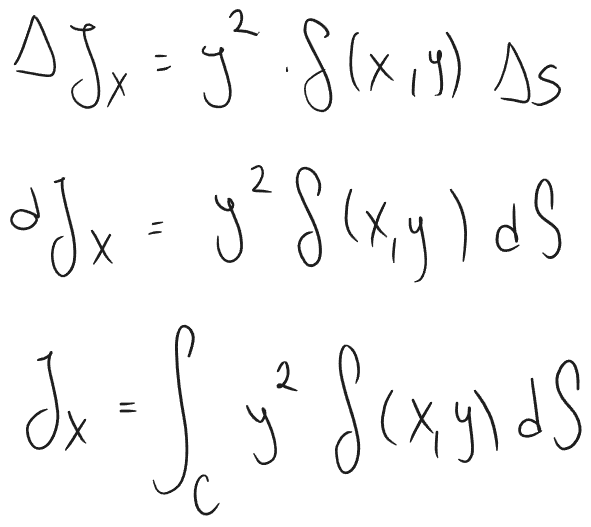 ΔJₓ = y² · δ(x,y) Δs
dJₓ = y² δ(x,y) dS
Jₓ = ∫_C y² δ(x,y) dS